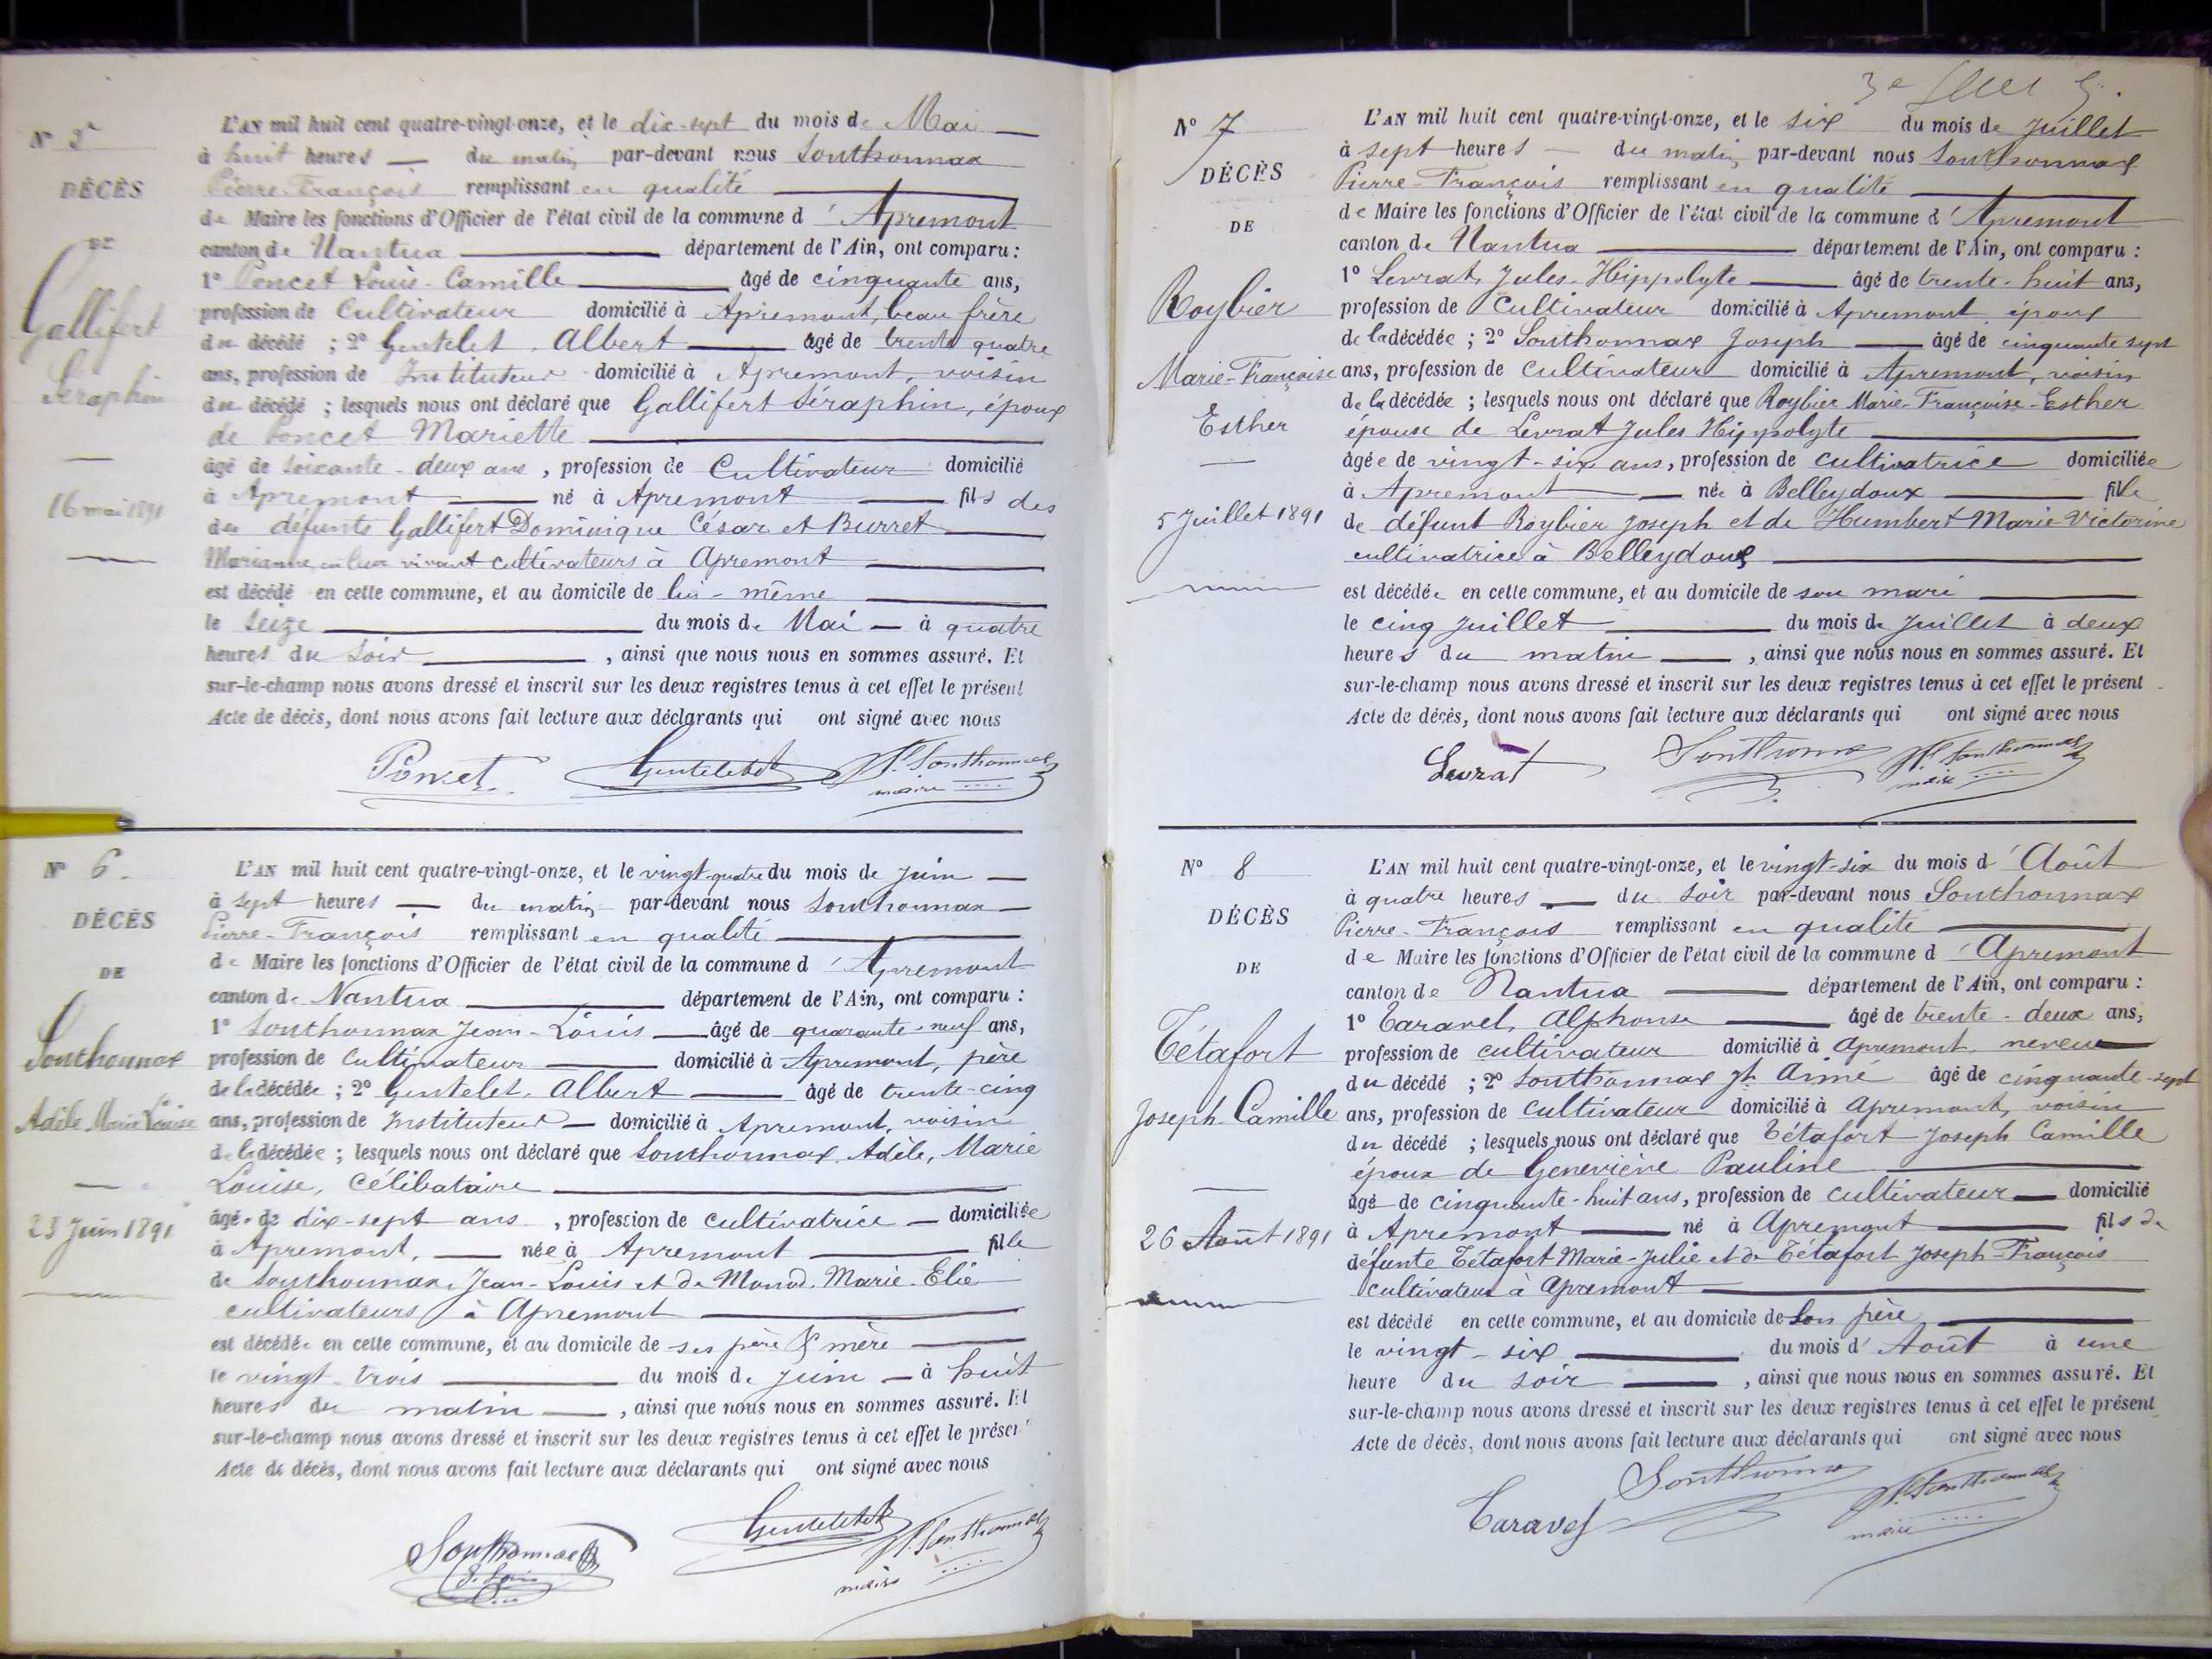 N° 5
DÉCÈS
DE
Gallifert
Séraphin
16 mai 1891
L'AN mil huit cent quatre-vingt-onze, et le dix-sept du mois de Mai
à huit heures du matin par-devant nous Southonnax
Pierre-François remplissant en qualité
de Maire les fonctions d'Officier de l'état civil de la commune d'Apremont
canton de Nantua département de l'Ain, ont comparu :
1° Poncet Louis-Camille âgé de cinquante ans,
profession de Cultivateur domicilié à Apremont, beau frère
du décédé ; 2° Gentelet, Albert âgé de trente quatre
ans, profession de Instituteur domicilié à Apremont, voisin
du décédé ; lesquels nous ont déclaré que Gallifert Séraphin, époux
de Poncet Mariette
âgé de soixante-deux ans, profession de Cultivateur domicilié
à Apremont né à Apremont fils des
du défunts Gallifert Dominique César et Burret
Marianne en leur vivant cultivateurs à Apremont
est décédé en cette commune, et au domicile de lui-même
le seize du mois de Mai à quatre
heures du soir, ainsi que nous nous en sommes assuré. Et
sur-le-champ nous avons dressé et inscrit sur les deux registres tenus à cet effet le présent
Acte de décès, dont nous avons fait lecture aux déclarants qui ont signé avec nous
Poncet Gentelet Southonnax
maire
N° 6.
DÉCÈS
DE
Southonnax
Adèle Marie Louise
23 Juin 1891
L'AN mil huit cent quatre-vingt-onze, et le vingt-quatre du mois de Juin
à sept heures du matin par-devant nous Southonnax
Pierre-François remplissant en qualité
de Maire les fonctions d'Officier de l'état civil de la commune d'Apremont
canton de Nantua département de l'Ain, ont comparu :
1° Southonnax Jean-Louis âgé de quarante-neuf ans,
profession de Cultivateur domicilié à Apremont, père
de la décédée ; 2° Gentelet, Albert âgé de trente-cinq
ans, profession de Instituteur domicilié à Apremont, voisin
de la décédée ; lesquels nous ont déclaré que Southonnax, Adèle, Marie
Louise, Célibataire
âgée de dix-sept ans, profession de cultivatrice domiciliée
à Apremont, née à Apremont fille
de Southonnax, Jean-Louis et de Monod, Marie-Elie
cultivateurs à Apremont
est décédée en cette commune, et au domicile de ses père & mère
le vingt-trois du mois de Juin à huit
heures du matin, ainsi que nous nous en sommes assuré. Et
sur-le-champ nous avons dressé et inscrit sur les deux registres tenus à cet effet le présent
Acte de décès, dont nous avons fait lecture aux déclarants qui ont signé avec nous
Southonnax Gentelet Southonnax
maire
N° 7
DÉCÈS
DE
Roybier
Marie-Françoise
Esther
5 Juillet 1891
L'AN mil huit cent quatre-vingt-onze, et le six du mois de Juillet
à sept heures du matin par-devant nous Southonnax
Pierre-François remplissant en qualité
de Maire les fonctions d'Officier de l'état civil de la commune d'Apremont
canton de Nantua département de l'Ain, ont comparu :
1° Levrat, Jules-Hippolyte âgé de trente-huit ans,
profession de Cultivateur domicilié à Apremont, époux
de la décédée ; 2° Southonnax Joseph âgé de cinquante sept
ans, profession de cultivateur domicilié à Apremont, voisin
de la décédée ; lesquels nous ont déclaré que Roybier Marie-Françoise-Esther
épouse de Levrat Jules Hippolyte
âgée de vingt-six ans, profession de cultivatrice domiciliée
à Apremont née à Belleydoux fille
de défunt Roybier Joseph et de Humbert Marie Victorine
cultivatrice à Belleydoux
est décédée en cette commune, et au domicile de son mari
le cinq Juillet du mois de Juillet à deux
heures du matin, ainsi que nous nous en sommes assuré. Et
sur-le-champ nous avons dressé et inscrit sur les deux registres tenus à cet effet le présent
Acte de décès, dont nous avons fait lecture aux déclarants qui ont signé avec nous
Levrat Southonnax Southonnax
maire
N° 8
DÉCÈS
DE
Tétafort
Joseph-Camille
26 Août 1891
L'AN mil huit cent quatre-vingt-onze, et le vingt-six du mois d'Août
à quatre heures du soir par-devant nous Southonnax
Pierre-François remplissant en qualité
de Maire les fonctions d'Officier de l'état civil de la commune d'Apremont
canton de Nantua département de l'Ain, ont comparu :
1° Caravel, Alphonse âgé de trente-deux ans,
profession de cultivateur domicilié à Apremont, neveu
du décédé ; 2° Southonnax Jh Aimé âgé de cinquante-sept
ans, profession de cultivateur domicilié à Apremont, voisin
du décédé ; lesquels nous ont déclaré que Tétafort Joseph Camille
époux de Geneviève Pauline
âgé de cinquante-huit ans, profession de cultivateur domicilié
à Apremont né à Apremont fils de
défunte Tétafort Marie-Julie et de Tétafort Joseph-François
cultivateur à Apremont
est décédé en cette commune, et au domicile de son père
le vingt-six du mois d'Août à une
heure du soir, ainsi que nous nous en sommes assuré. Et
sur-le-champ nous avons dressé et inscrit sur les deux registres tenus à cet effet le présent
Acte de décès, dont nous avons fait lecture aux déclarants qui ont signé avec nous
Caravel Southonnax Southonnax
maire